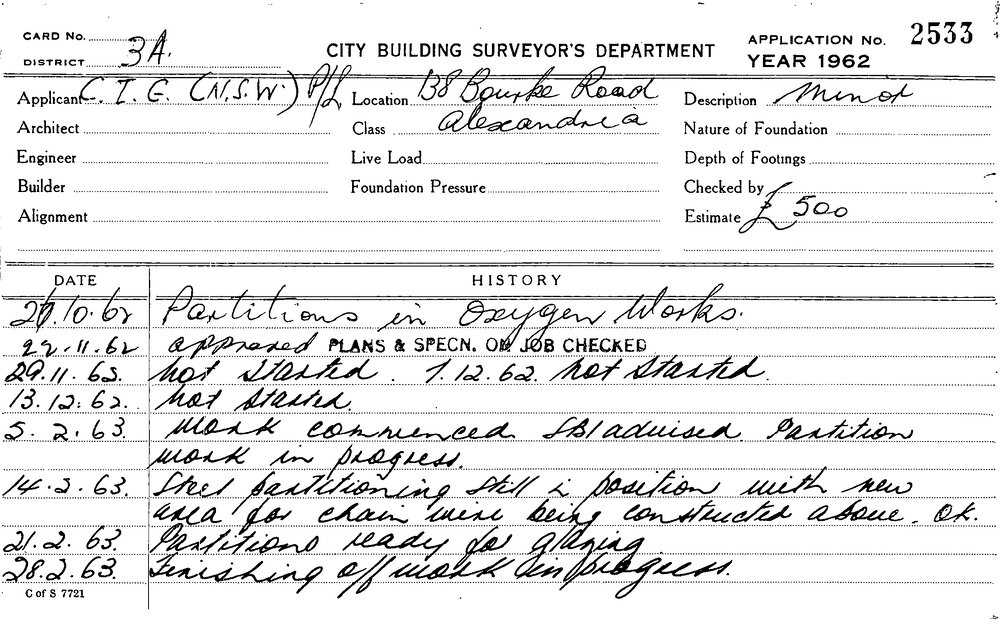 CARD No.
DISTRICT 3A.
CITY BUILDING SURVEYOR'S DEPARTMENT
APPLICATION No. 2533
YEAR 1962
Applicant C. I. G. (N.S.W.) P/L Location 138 Bourke Road Description Minor
Architect Class Alexandria Nature of Foundation
Engineer Live Load Depth of Footings
Builder Foundation Pressure Checked by
Alignment Estimate £ 500
DATE HISTORY
.10.62 Partitions in Oxygen Works.
22.11.62 approved PLANS & SPECN. ON JOB CHECKED
29.11.62. Not Started. 7.12.62. Not Started.
13.12.62. Not Started.
5.2.63. Work commenced SBI advised. Partition
work in progress.
14.2.63. Steel partitioning still in position with new
area for chain wire being constructed above. OK.
21.2.63. Partitions ready for glazing
28.2.63. Finishing off work in progress.
C of S 7721